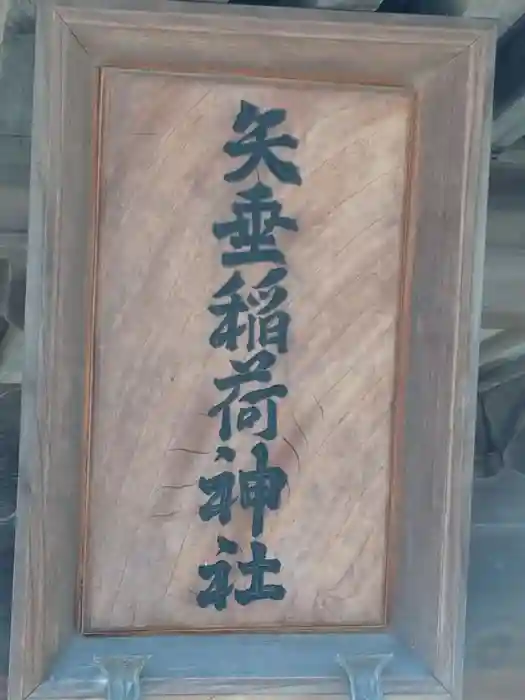 矢垂稲荷神社